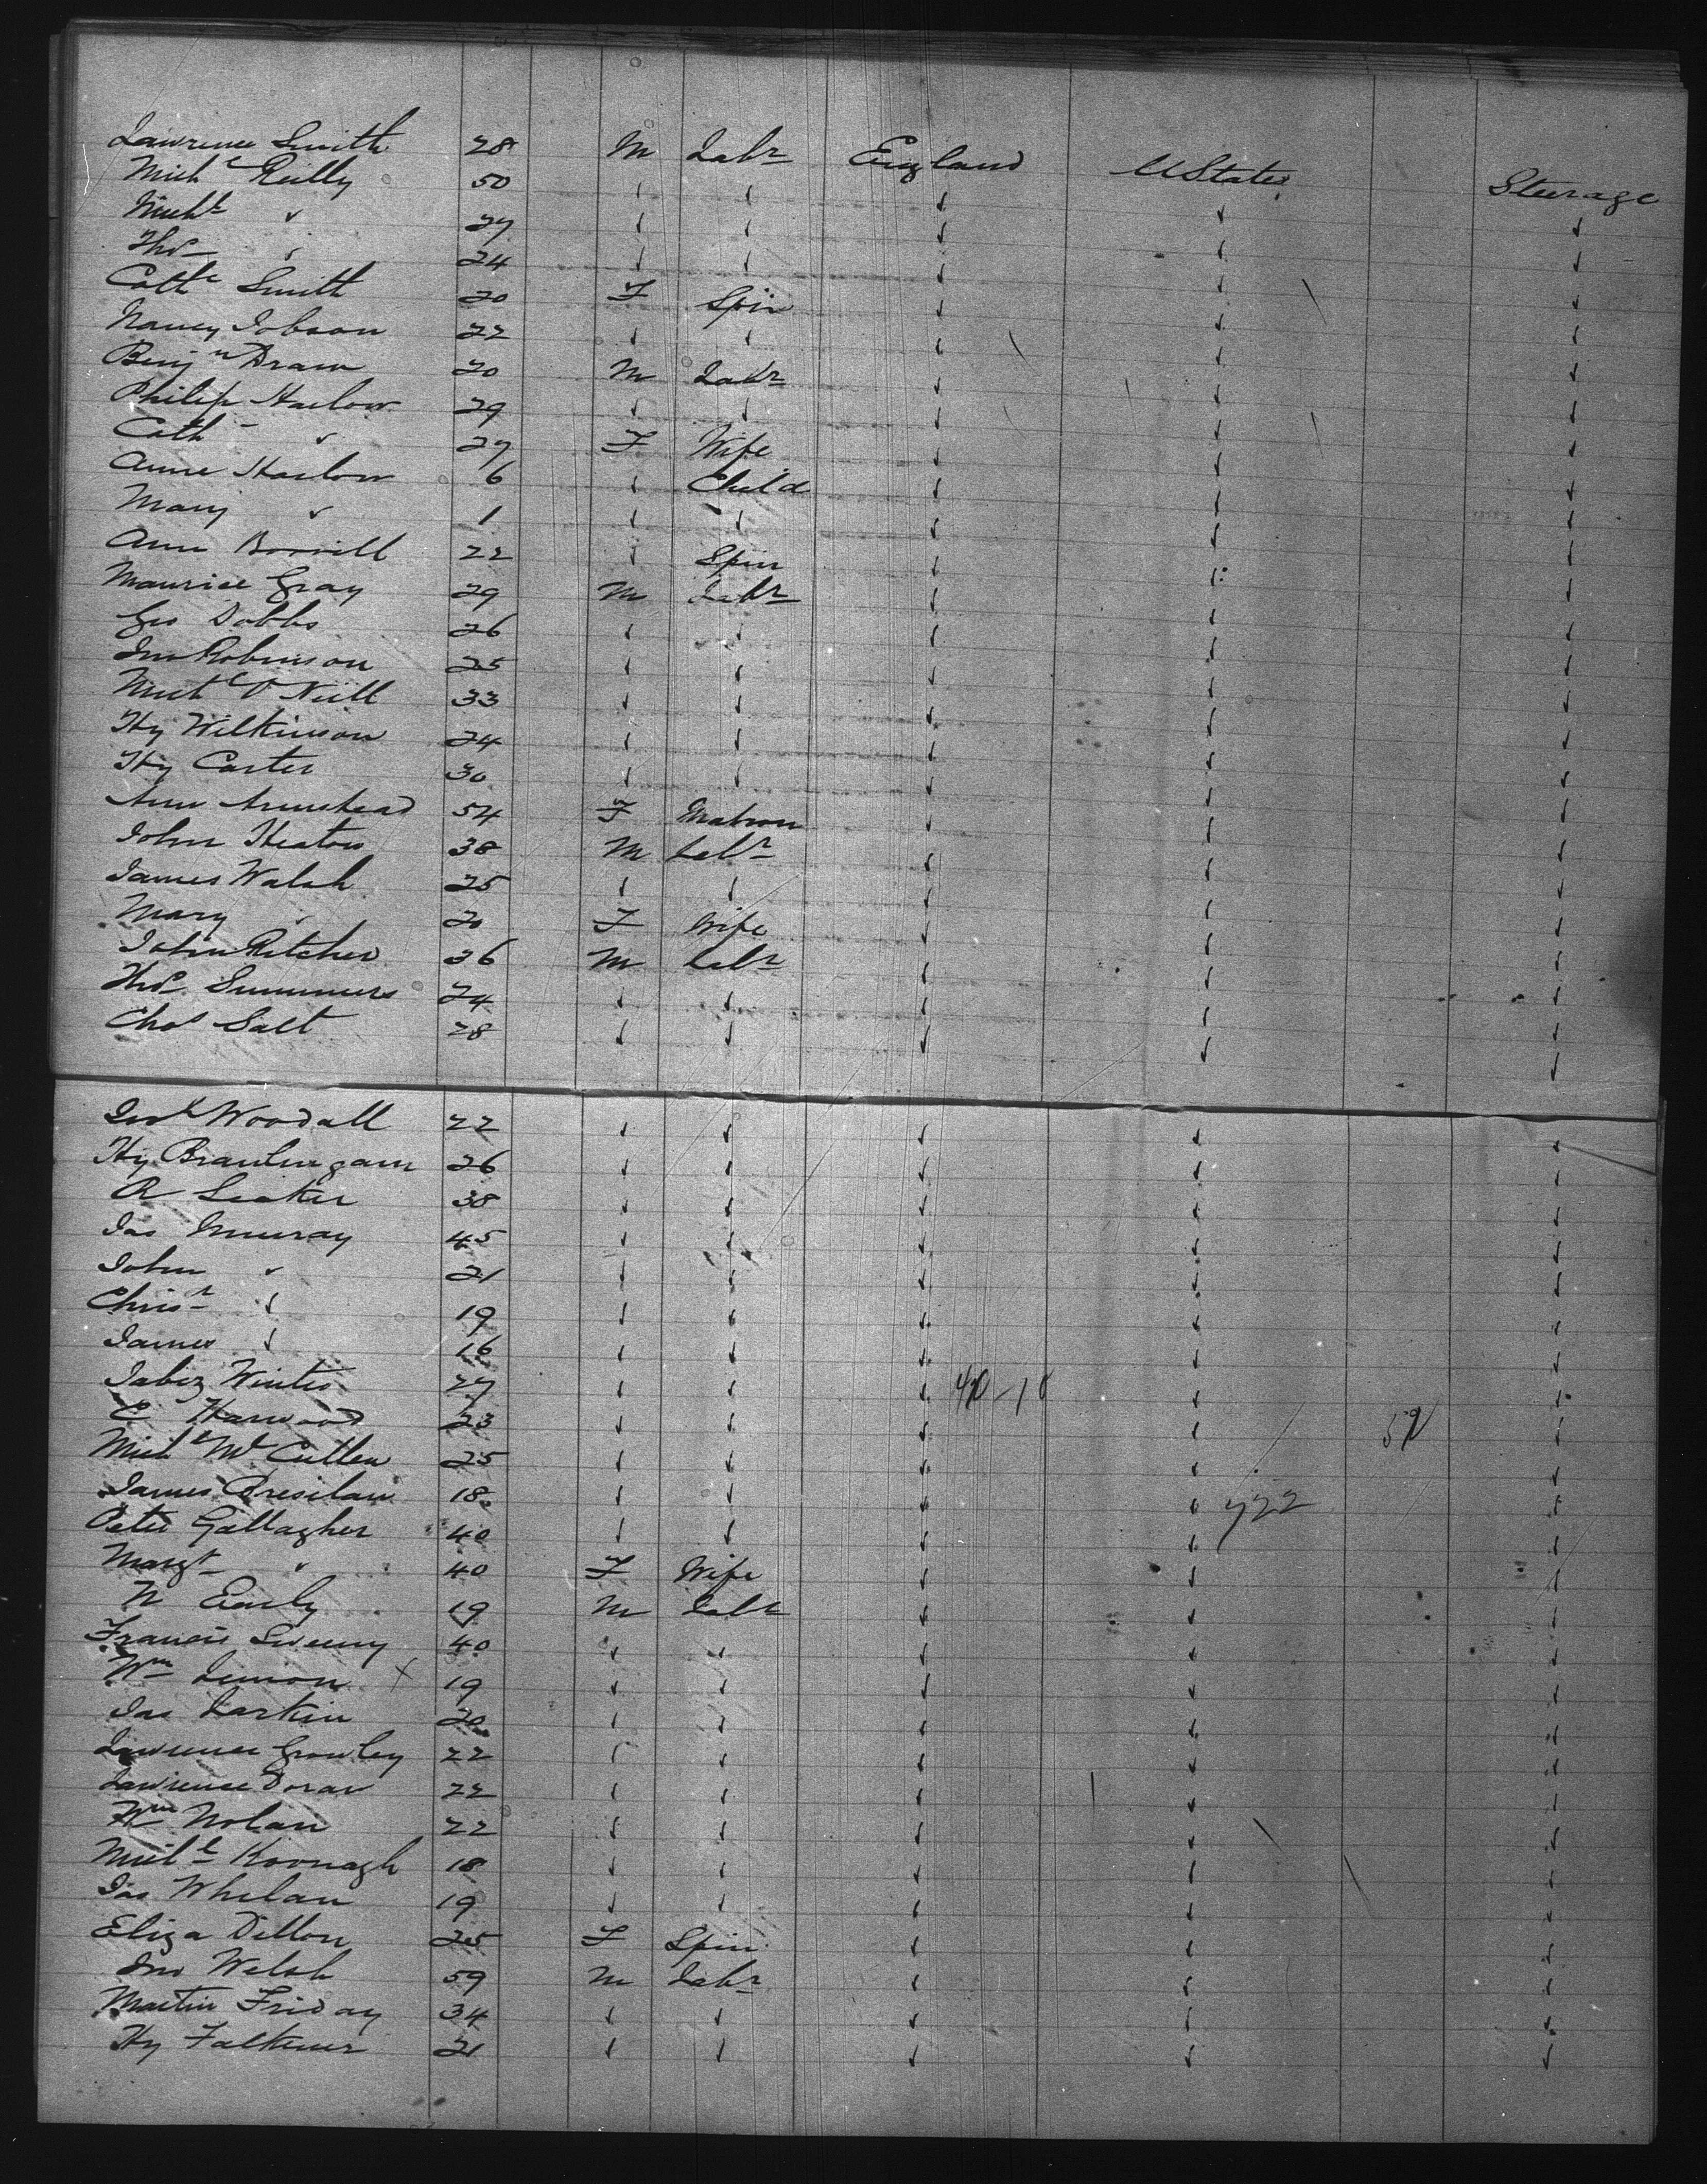 Lawrence Smith 28 M Labr England UStates Steerage
Michl Reilly 50 " " " " "
Michl " 27 " " " " "
Thos " 24 " " " " "
Cathe Smith 20 F Spin " " "
Nancy Jobson 22 " " " " "
Benjn 20 M Labr " " "
Philip Harlow 29 " " " " "
Cath " 27 F Wife " " "
Anne Harlow 6 " Child " " "
Mary " 1 " " " " "
Ann 22 " Spin " " "
Maurice Gray 29 M Labr " " "
Geo Dobbs 26 " " " " "
Jno Robinson 25 " " " " "
Michl O'Neill 33 " " " " "
Hy Wilkinson 24 " " " " "
Hy Carter 30 " " " " "
Ann Armstead 54 F Matron " " "
John Heaton 38 M Labr " " "
James Walsh 25 " " " " "
Mary " 20 F Wife " " "
John 36 M Labr " " "
Thos Summers 24 " " " " "
Chas Salt 28 " " " " "
Woodall 22 " " " " "
Hy 26 " " " " "
R 38 " " " " "
Jas Murray 45 " " " " "
John " 21 " " " " "
Chrisr " 19 " " " " "
James " 16 " " " " "
Jabez Winter 27 " " " " "
E Harwood 23 " " " " "
Michl McCullen 25 " " " " "
James 18 " " " " "
Peter Gallagher 40 " " " " "
Margt " 40 F Wife " " "
N Early 19 M Labr " " "
Francis Sweeny 40 " " " " "
Wm Lemon X 19 " " " " "
Jas Larkin 20 " " " " "
Lawrence 22 " " " " "
Lawrence Doran 22 " " " " "
Wm Nolan 22 " " " " "
Michl 18 " " " " "
Jas Whelan 19 " " " " "
Eliza Dillon 25 F Spin " " "
Jno Welsh 59 M Labr " " "
Martin Friday 34 " " " " "
Hy Falkener 21 " " " " "